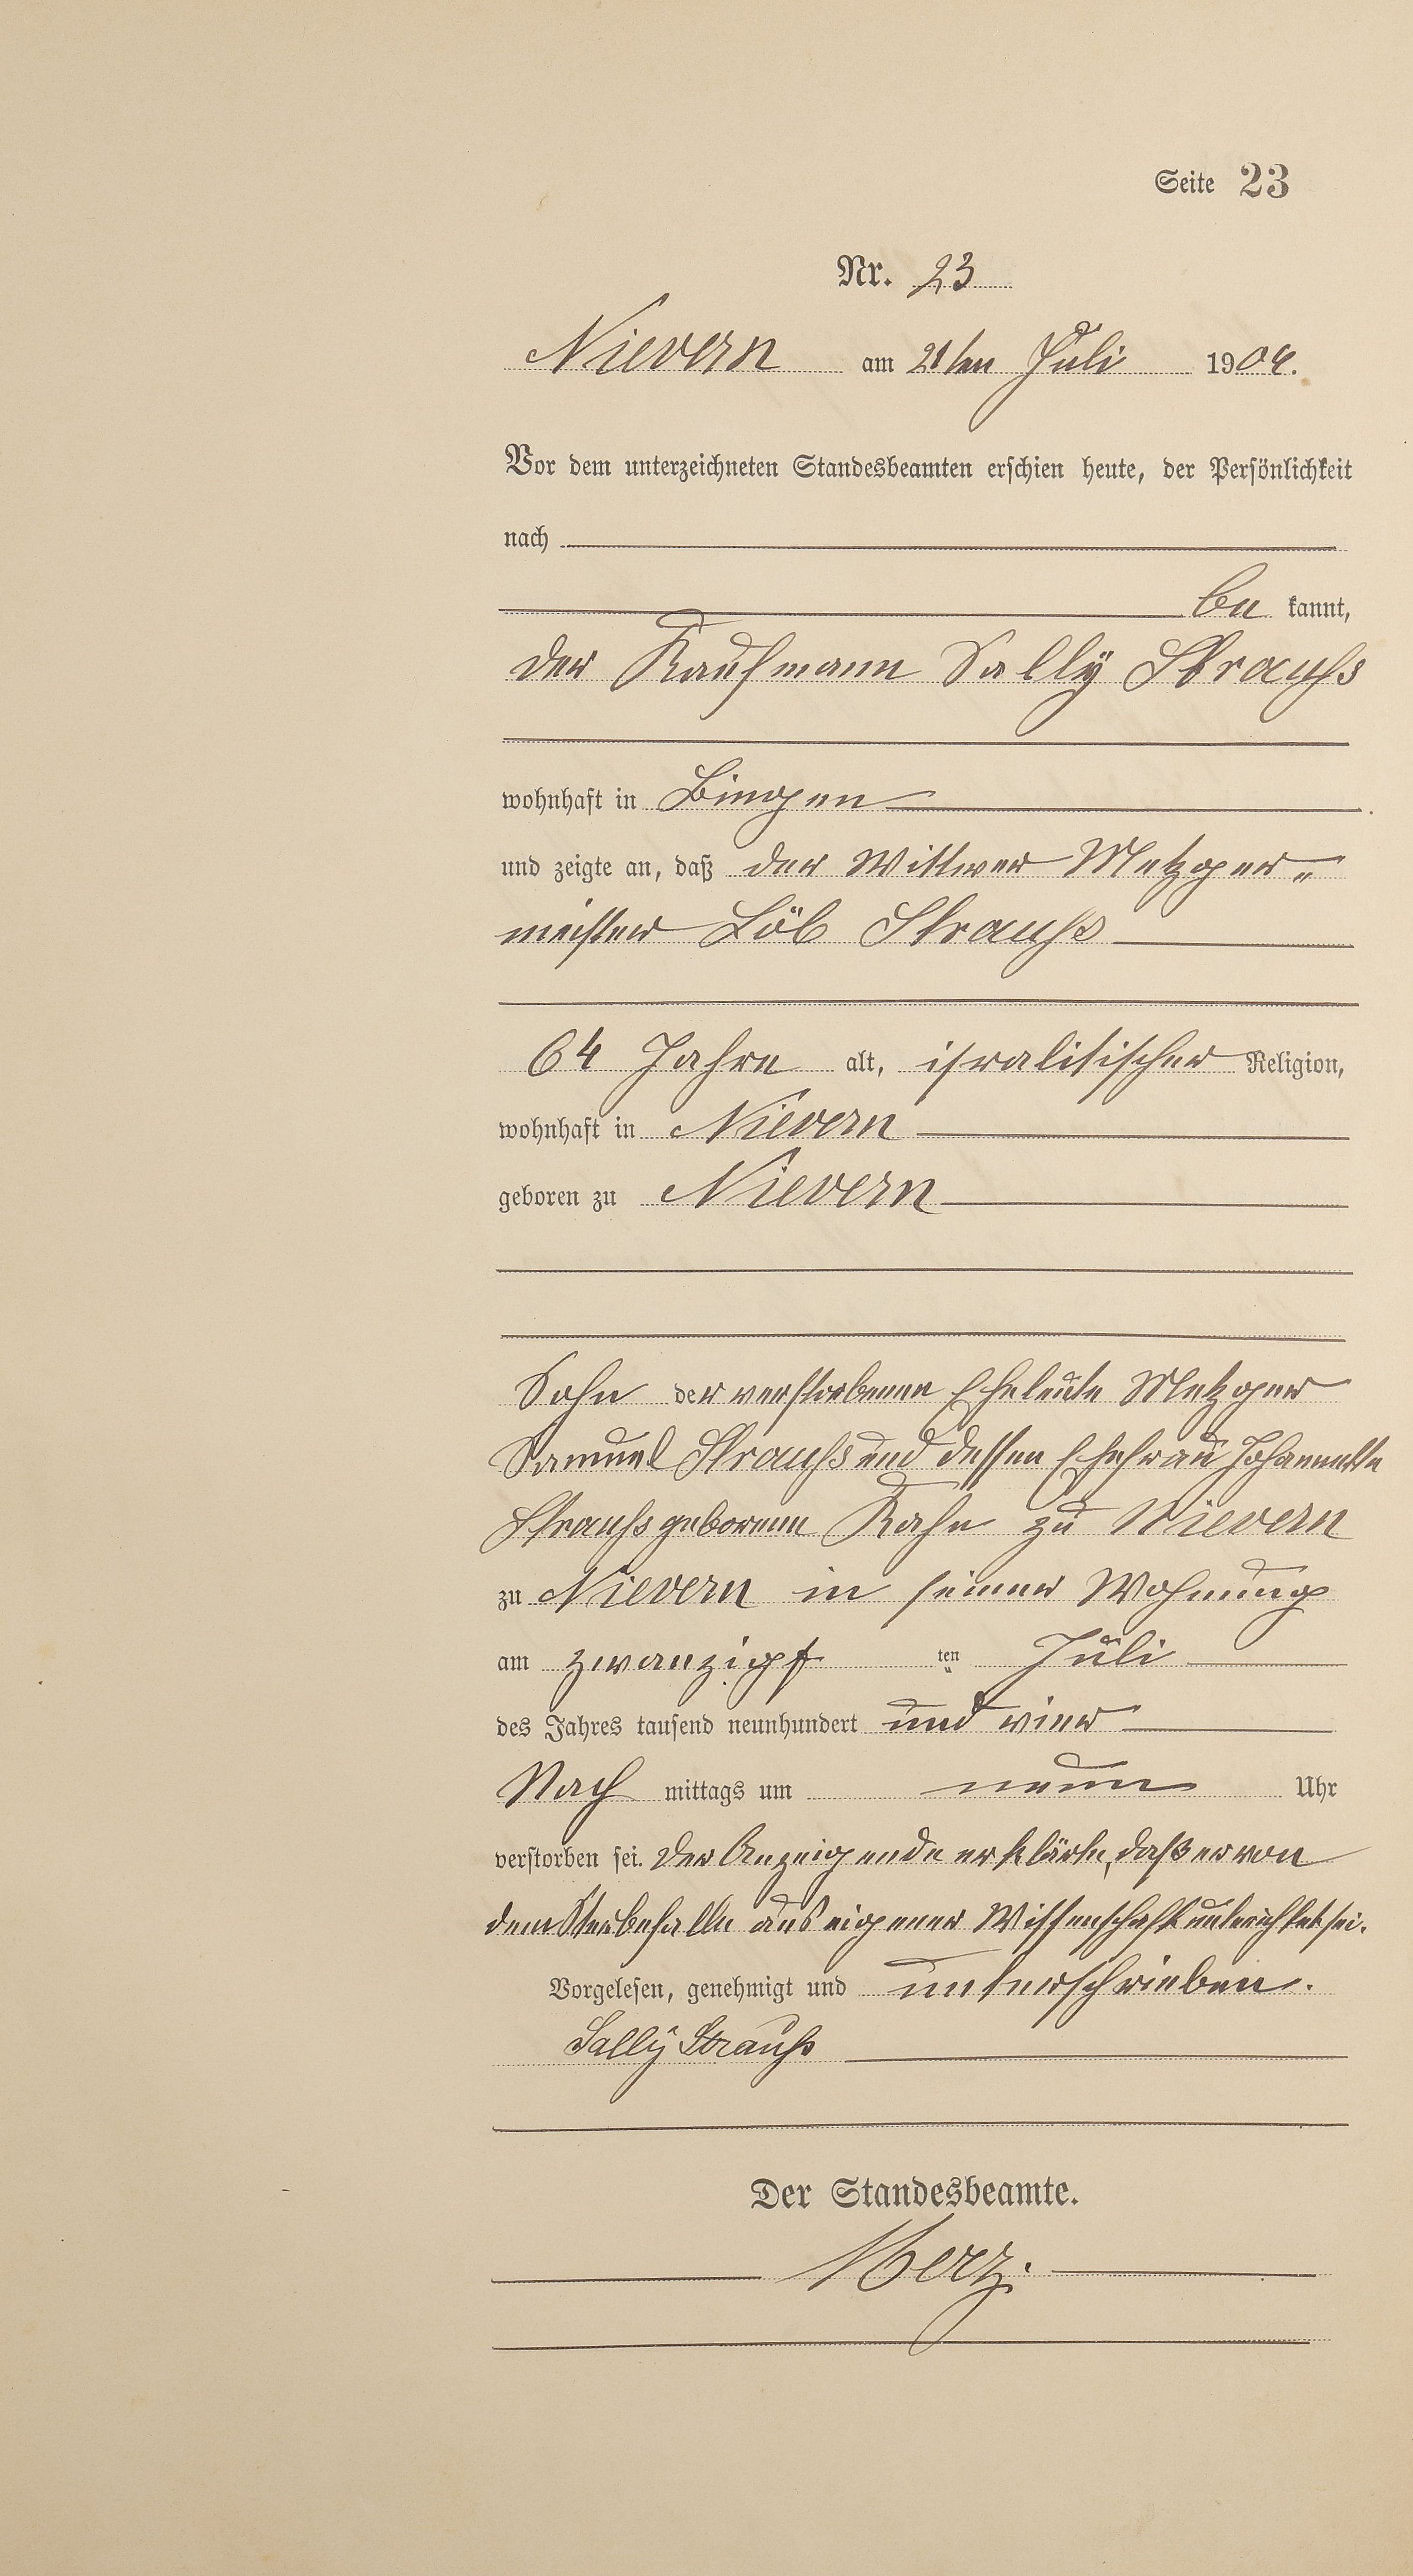 Seite 23
Nr. 23
Nievern am 21ten Juli 1904.
Vor dem unterzeichneten Standesbeamten erschien heute, der Persönlichkeit
nach
be kannt,
der Kaufmann Sally Strauß
wohnhaft in Bingen
und zeigte an, daß der Wittwer Metzger-
meister Löb Strauß
64 Jahre alt, isralitischer Religion,
wohnhaft in Nievern
geboren zu Nievern
Sohn der verstorbenen Eheleute Metzger
Samuel Strauß und dessen Ehefrau Johannette
Strauß geborenen Kahn zu Nievern
zu Nievern in seiner Wohnung
am zwanzigs ten Juli
des Jahres tausend neunhundert und vier
Nach mittags um neun Uhr
verstorben sei. Der Anzeigende erklärte, daß er von
dem Sterbefalle aus eigener Wissenschaft unterichtet sei.
Vorgelesen, genehmigt und unterschrieben.
Sally Strauß
Der Standesbeamte.
Merz.